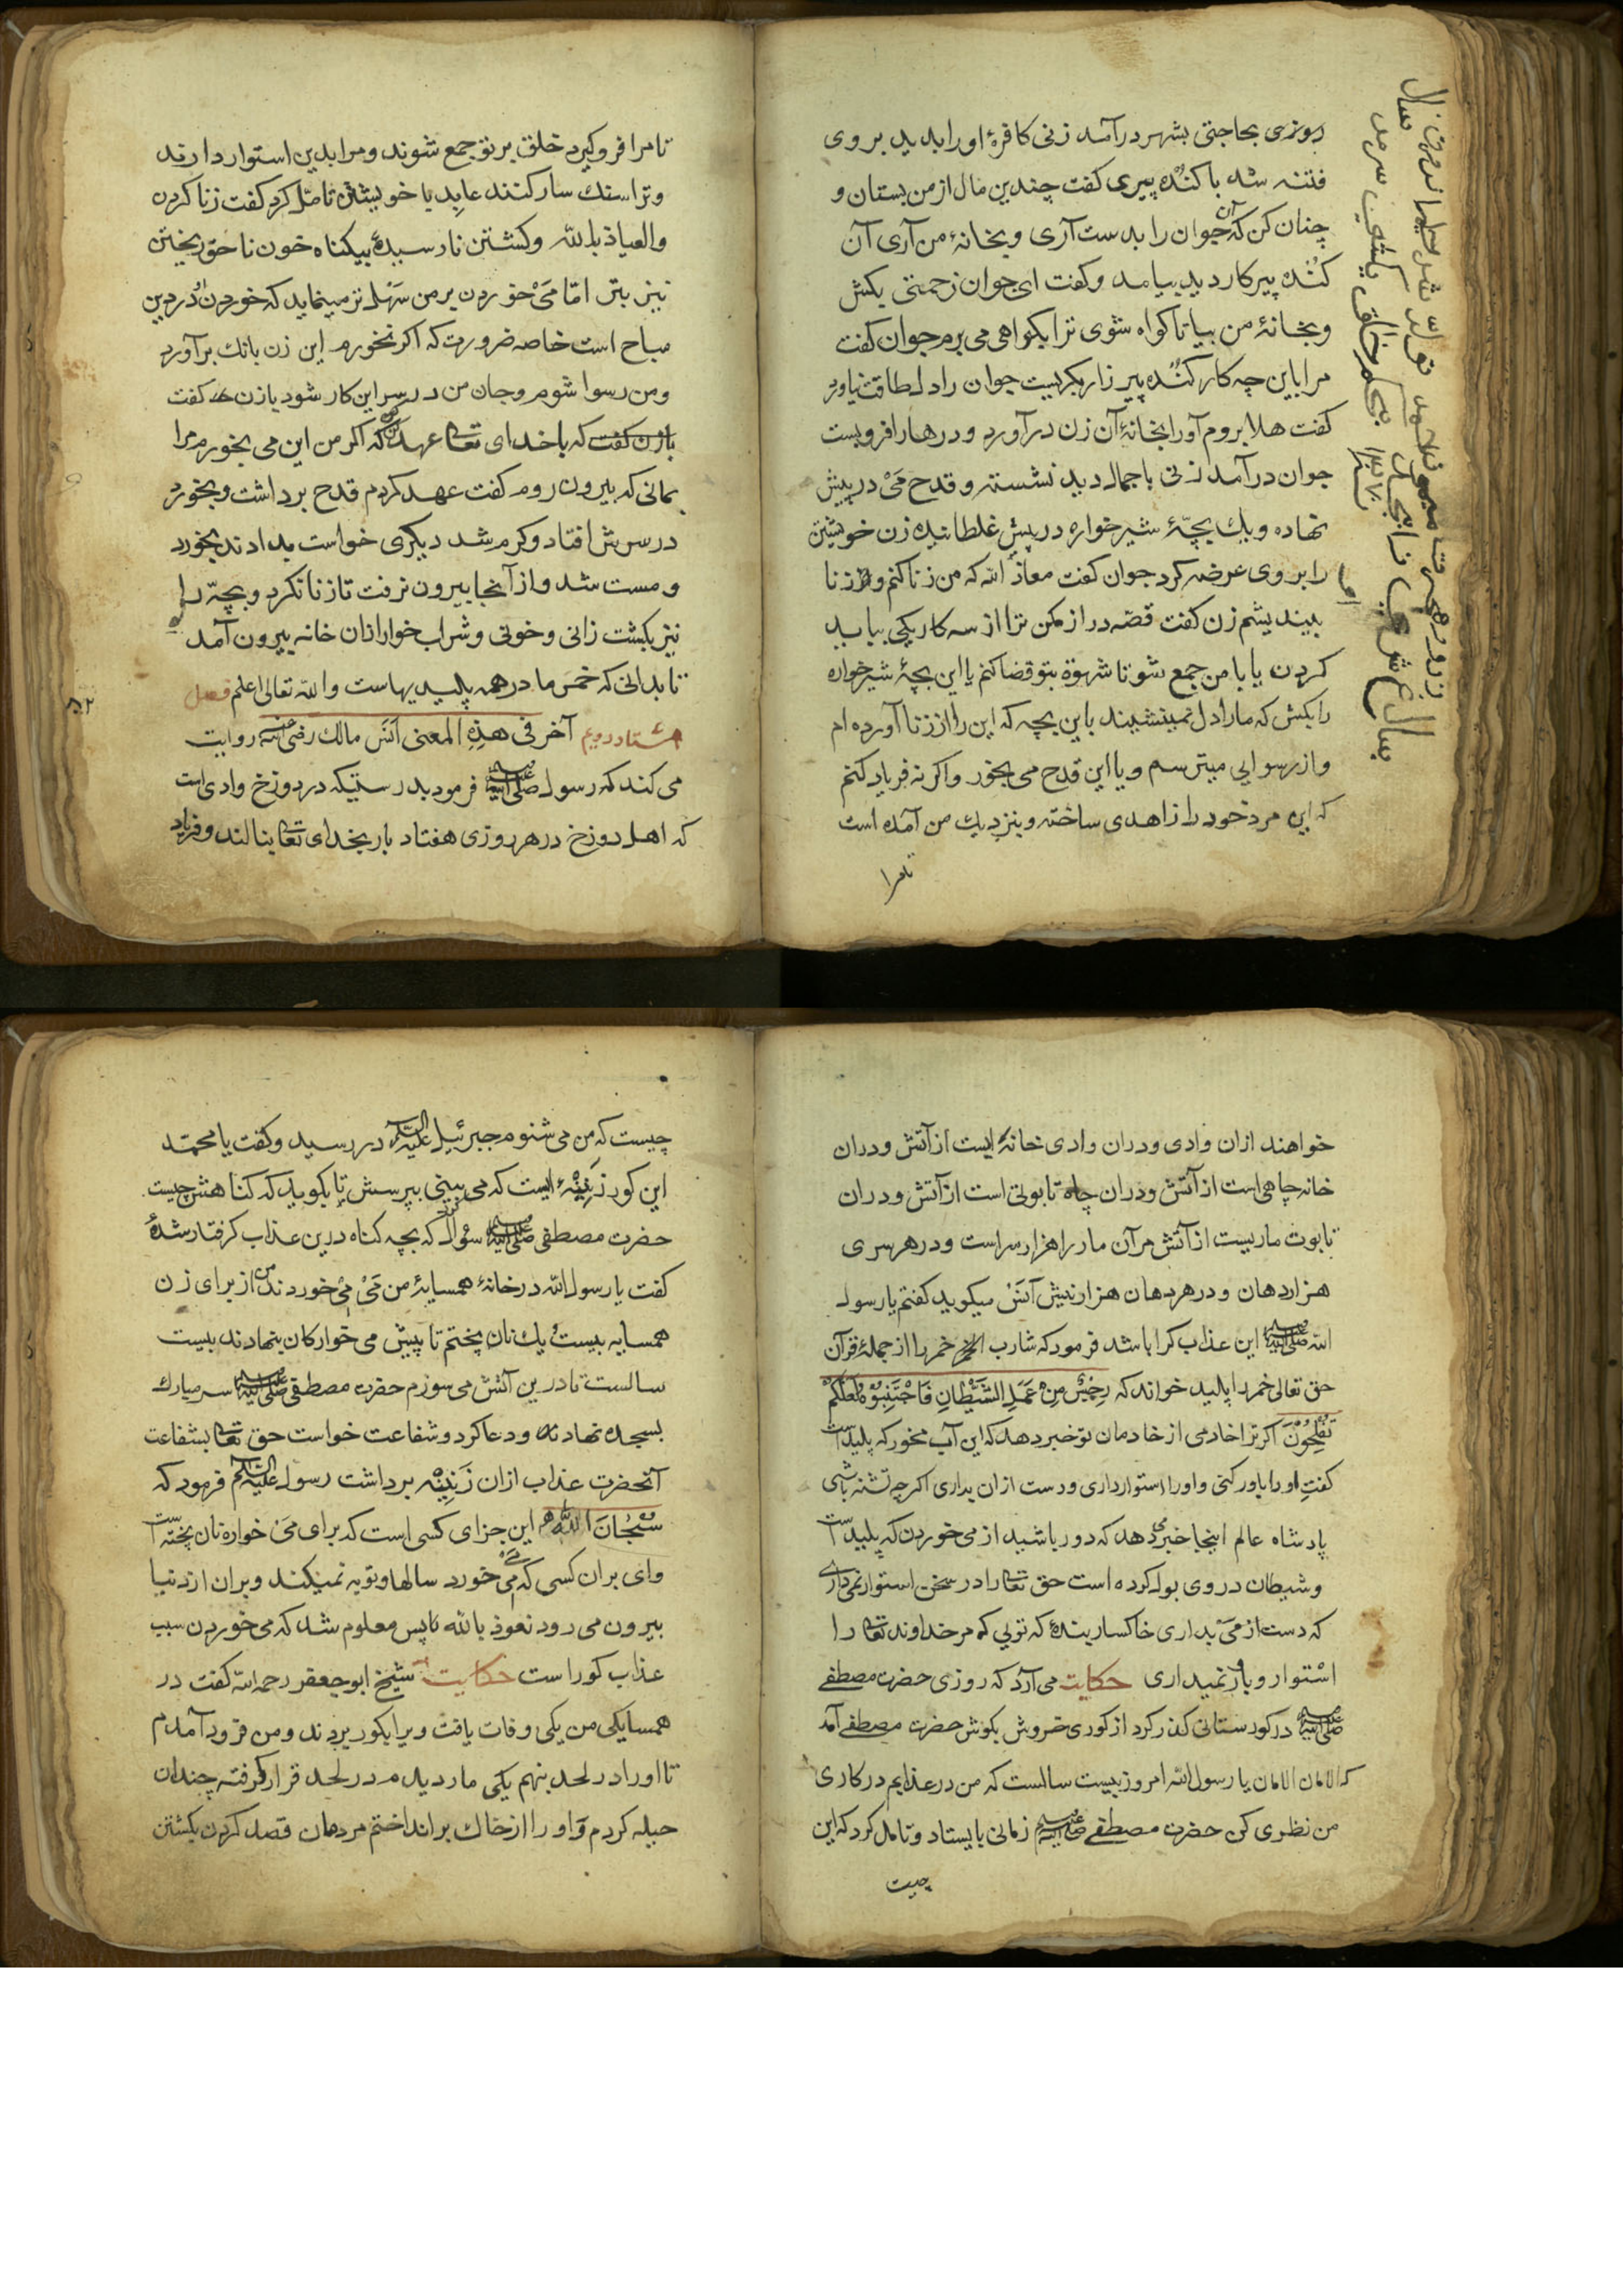 روزی بحاجتی بشهر درآمد زنی کافرهٔ او را بدید بر وی
فتنه شد با کنده پیری کفت چندین مال از من بستان و
چنان کن که آن جوان را بدست آری و بخانهٔ من آری آن
کنده پیر کار دید بیامد و کفت ای جوان زحمتی بکش
و بخانهٔ من بیا تا کواه شوی ترا بکواهی می برم جوان کفت
مرا باین چه کار کنده پیر زار بکریست جوان را دل طاقت نیاورد
کفت هلا بروم آورا بخانهٔ آن زن درآورد و درها را فروبست
جوان درآمد زنی با جمال دید نشسته و قدح می در پیش
نهاده و یک بچهٔ شیر خواره در پیش غلطانیده زن خویشتن
را بر وی عرضه کرد جوان کفت معاذ الله که من زنا کنم و از زنا
بیندیشم زن کفت قصه دراز مکن ترا از سه کار یکی بباید
کردن یا با من جمع شو تا شهوة بتو قضا کنم یا این بچهٔ شیر خواره
را بکش که ما را دل نمینشیند باین بچه که این را از زنا آورده ام
و از رسوایی میترسم و یا این قدح می بخور و اکر نه فریاد کنم
که این مرد خود را زاهدی ساخته و بنزدیک من آمده است
تا مرا
تا مرا فرو کیرد خلق بر تو جمع شوند و مرا بدین استوار دارند
و ترا سنک سار کنند عابد با خویشتن تامل کرد کفت زنا کردن
والعیاذ بالله و کشتن نارسیدهٔ بیکناه خون ناحق ریختن
نیز بتر اما می خوردن بر من سهل تر مینماید که خوردن در دین
مباح است خاصه ضرورت که اکر نخورم این زن بانک برآورد
و من رسوا شوم و جان من در سر این کار شود با زن کفت
با زن کفت که با خدای تعالی عهد کن که اکر من این می بخورم مرا
بمانی که بیرون روم کفت عهد کردم قدح برداشت و بخورد
در سرش افتاد و کرم شد دیکری خواست بدادند بخورد
و مست شد و از آنجا بیرون نرفت تا زنا نکرد و بچه را
نیز بکشت زانی و خونی و شراب خوار از ان خانه بیرون آمد
تا بدانی که خمر مادر همه پلیدیهاست والله تعالی اعلم فصل
هشتاد دویم آخر فی هذه المعنی انس مالک رضی الله عنه روایت
می کند که رسول صلی الله علیه وسلم فرمود بدرستیکه در دوزخ وادی است
که اهل دوزخ در هر روزی هفتاد بار بخدای تعالی بنالند و فریاد
خواهند ازان وادی و دران وادی خانهٔ ایست از آتش و دران
خانه چاهی است از آتش و دران چاه تابوتی است از آتش و دران
تابوت ماریست از آتش مر آن مار را هزار سر است و در هر سری
هزار دهان و در هر دهان هزار نیش آنس میکوید کفتم یا رسول
الله صلی الله علیه وسلم این عذاب کرا باشد فرمود که شارب الخمر خمر را از جملهٔ قرآن
حق تعالی خمر را پلید خواند که رجس من عمل الشیطان فاجتنبوه لعلکم
تفلحون اکر ترا خادمی از خادمان تو خبر دهد که این آب مخور که پلید است
کفت او را باور کنی و او را استوار داری و دست ازان بداری اکر چه تشنه باشی
پادشاه عالم اینجا خبر می دهد که دور باشید از می خوردن که پلید است
و شیطان در وی بول کرده است حق تعالی را در سخن استوار نمی داری
که دست از می بداری خاکسار بندهٔ که تویی که مر خداوند تعالی را
استوار و باور نمیداری حکایت می آرد که روزی حضرت مصطفی
صلی الله علیه وسلم در کورستانی کذر کرد از کوری خروش بکوش حضرت مصطفی آمد
که الامان الامان یا رسول الله امروز بیست سالست که من در عذابم در کاری
من نظری کن حضرت مصطفی صلی الله علیه وسلم زمانی بایستاد و تامل کرد که این
چیست
چیست که من می شنوم جبرئیل علیه السلام در رسید و کفت یا محمد
این کور زنینهٔ ایست که می بینی بپرسش تا بکوید که کناهش چیست
حضرت مصطفی صلی الله علیه وسلم سؤال کرد که بچه کناه درین عذاب کرفتار شدهٔ
کفت یا رسول الله در خانهٔ همسایهٔ من می می خوردند من از برای زن
همسایه بیست یک نان پختم تا پیش می خوارکان بنهادند بیست
سالست تا درین آتش می سوزم حضرت مصطفی صلی الله علیه وسلم سر مبارک
بسجده نهادند و دعا کرد و شفاعت خواست حق تعالی بشفاعت
آنحضرت عذاب ازان زنینه برداشت رسول علیه السلام فرمود که
سبحان الله این جزای کسی است که برای می خواره نان پخته است
وای بران کسی که می خورد سالها و توبه نمیکند و بران از دنیا
بیرون می رود نعوذ بالله تا پس معلوم شد که می خوردن سبب
عذاب کور است حکایت شیخ ابو جعفر رحمه الله کفت در
همسایکی من یکی وفات یافت ویرا بکور بردند و من فرود آمدم
تا او را در لحد بنهم یکی مار دیدم در لحد قرار کرفته چندان
حیله کردم و او را از خاک برانداختم مردمان قصد کردن بکشتن